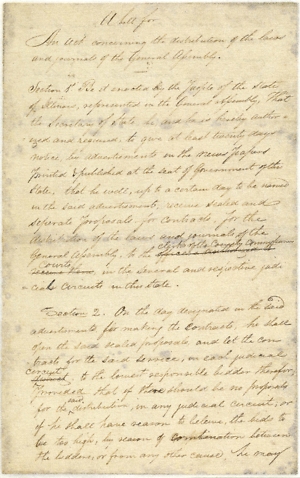 A bill for
An act concerning the distribution of the laws
and journals of the General Assembly.
Section 1st Be it enacted by the People of the State
of Illinois, represented in the General Assembly, That
the Secretary of State be, and he is hereby author-
ized and required, to give at least twenty days
notice, by advertisements in the newspapers
printed & published at the seat of Government of the
State, that he will, up to a certain day to be named
in the said advertisements, receive sealed and
seperate proposals, for contracts, for the
distribution of the laws and journals of the
clerks of the County Commissioners
General Assembly, to the
Courts,
in the several and respective jud-
icial circuits in this State.
Section 2. On the day designated in the said
advertisements for making the contracts, he shall
open the said sealed proposals, and let the con-
tracts for the said service, in each judicial
circuit,
to the lowest responsible bidder therefor,
Provided, that if there should be no proposals
said
for the distribution, in any judicial circuit, or
if he shall have reason to believe, the bids to
be too high, by reason of combination between
the bidders, or from any other cause, he may